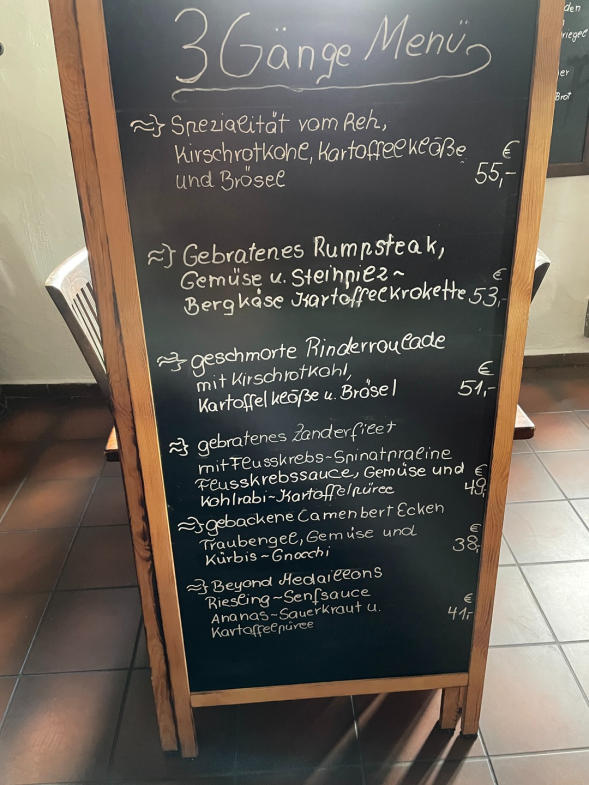 3 Gänge Menü
Spezialität vom Reh,
Kirschrotkohl, Kartoffelklöße €
und Brösel 55,-
Gebratenes Rumpsteak,
Gemüse u. Steinpilz~ €
Bergkäse Kartoffelkrokette 53,-
geschmorte Rinderroulade
mit Kirschrotkohl, €
Kartoffelklöße u. Brösel 51,-
gebratenes Zanderfilet
mit Flusskrebs~Spinatpraline
Flusskrebssauce, Gemüse und €
Kohlrabi-Kartoffelpüree 49,
gebackene Camenbert Ecken
Traubengel, Gemüse und €
Kürbis~Gnocchi 38,
Beyond Medaillons
Riesling~Senfsauce €
Ananas~Sauerkraut u. 41,-
Kartoffelpüree
Brot